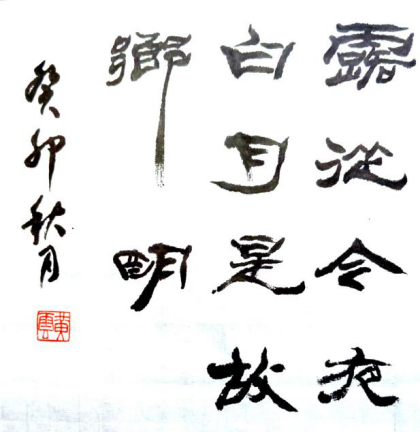 露從今夜
白月是故
鄉明
癸卯秋月
黄雲